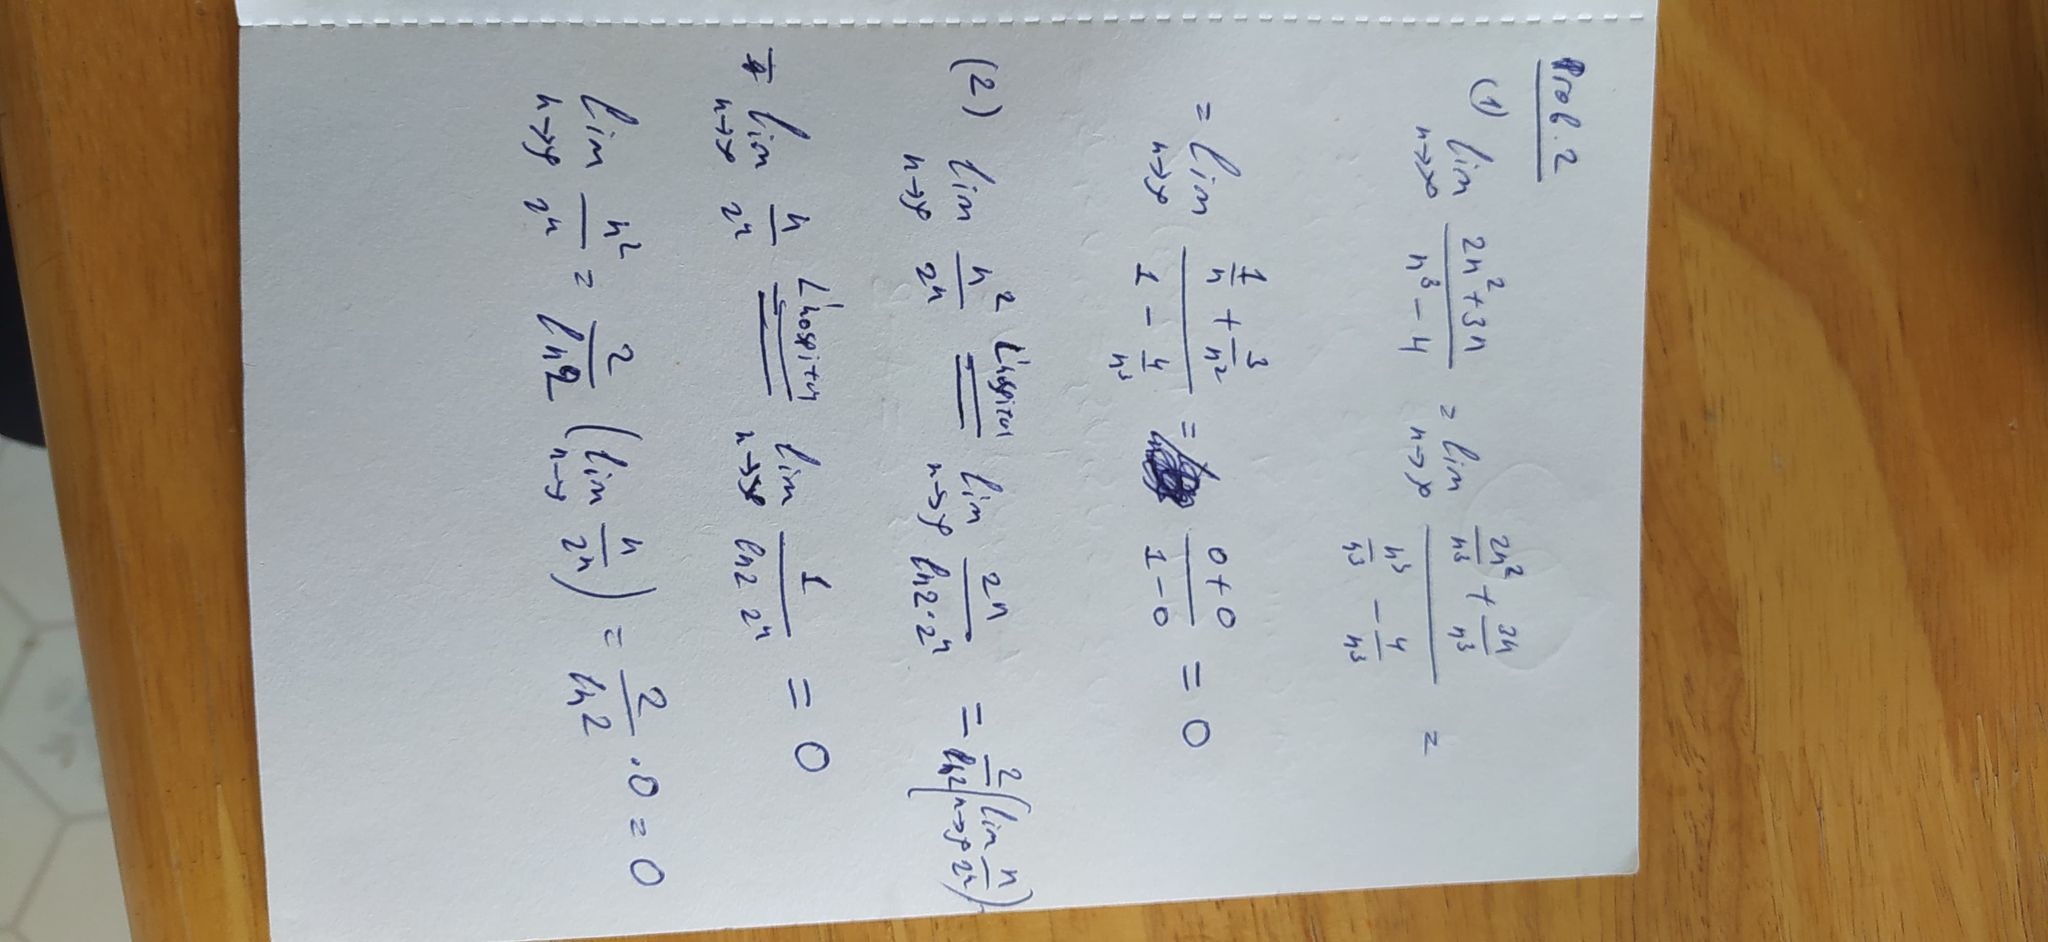 Prob. 2
(1) lim n→∞ (2n² + 3n)/(n³ − 4) = lim n→∞ (2n²/n³ + 3n/n³)/(n³/n³ − 4/n³) =
= lim n→∞ (1/n + 3/n²)/(1 − 4/n³) = (0+0)/(1−0) = 0
(2) lim n→∞ n²/2ⁿ =L'hospital= lim n→∞ 2n/(ln2·2ⁿ) = 2/ln2 (lim n→∞ n/2ⁿ)
lim n→∞ n/2ⁿ =L'hospital= lim n→∞ 1/(ln2 2ⁿ) = 0
lim n→∞ n²/2ⁿ = 2/ln2 (lim n→∞ n/2ⁿ) = 2/ln2 · 0 = 0